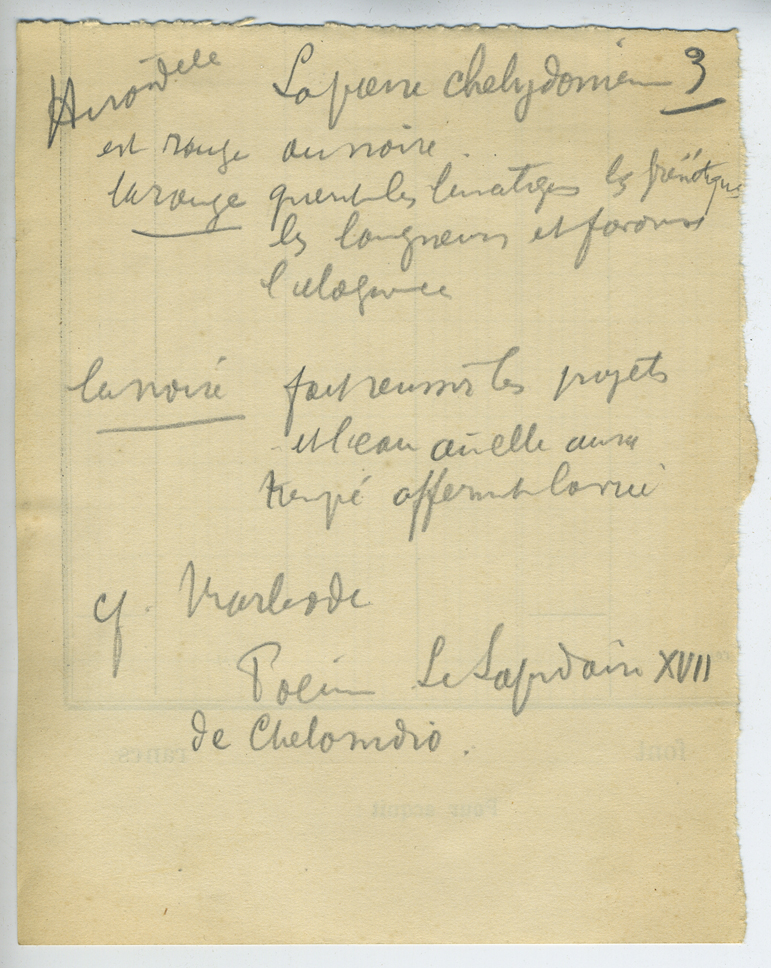 Hirondelle La pierre chelydonien 3
est rouge ou noire.
la rouge guerit les lunatiques les frénétiques
les langueurs et favorise
l'elegance
la noire fait reussir les projets
et l'eau où elle aura
trempé affermit la vue
cf. Marbode
Poeme Le Lapidaire XVII
de Chelonidio.
font
francs
Pour acquit